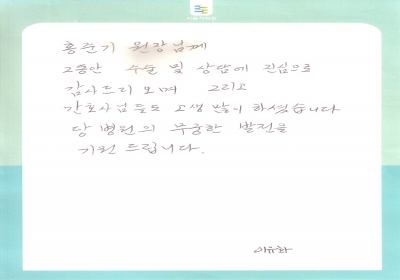 홍순기 원장님께
그동안 수술 및 상담에 진심으로
감사드리오며 그리고
간호사님들도 고생 많이 하셨습니다
당 병원의 무궁한 발전을
기원 드립니다.